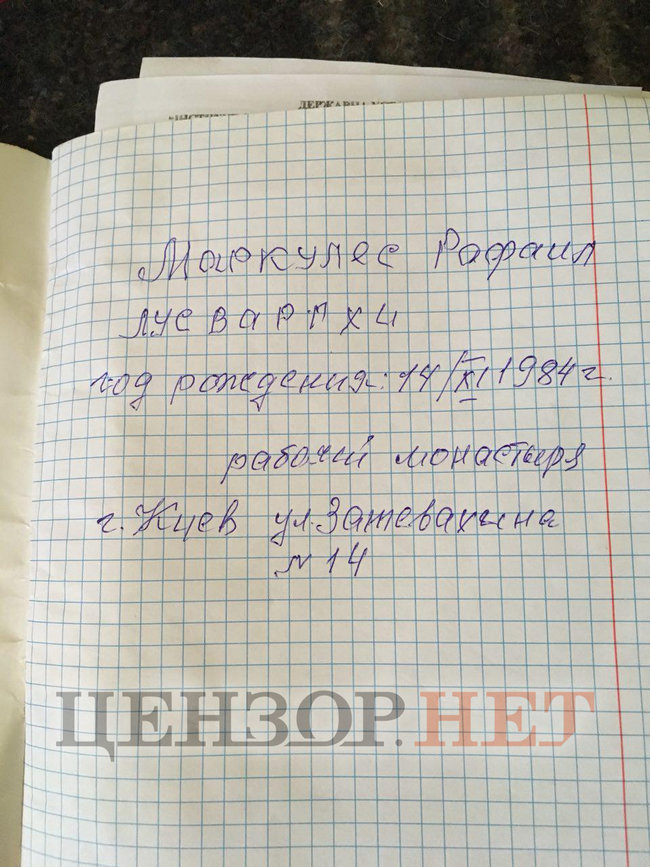 ДЕРЖАВНА УСТ
Маркулес Рафаил
лусваргхи
год рождения: 14/XI 1984 г.
рабочий монастыря
г. Киев ул. Затевахина
№ 14
ЦЕНЗОР.НЕТ